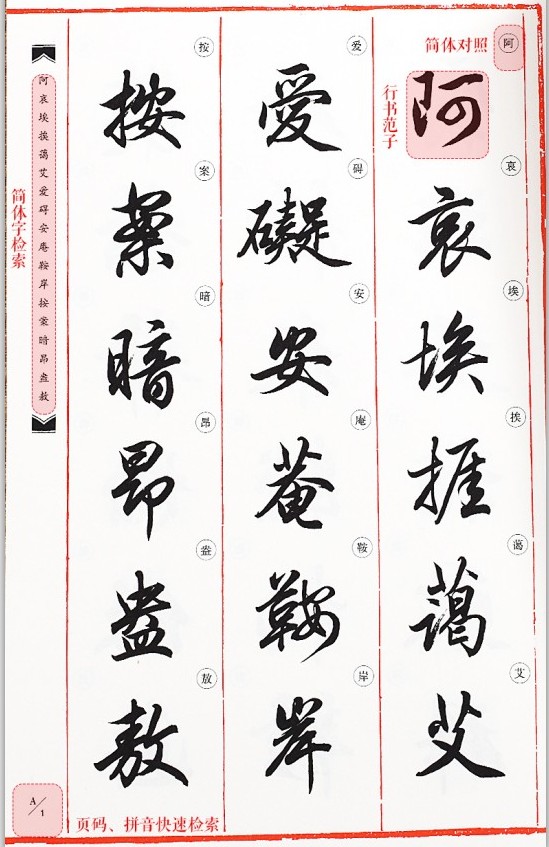 简体对照
阿
行书范子
阿
哀
哀
埃
埃
挨
捱
蔼
藹
艾
艾
爱
愛
碍
礙
安
安
庵
菴
鞍
鞍
岸
岸
按
按
案
案
暗
暗
昂
昂
盎
盎
敖
敖
阿哀埃挨蔼艾爱碍安庵鞍岸按案暗昂盎敖
简体字检索
A/1
页码、拼音快速检索